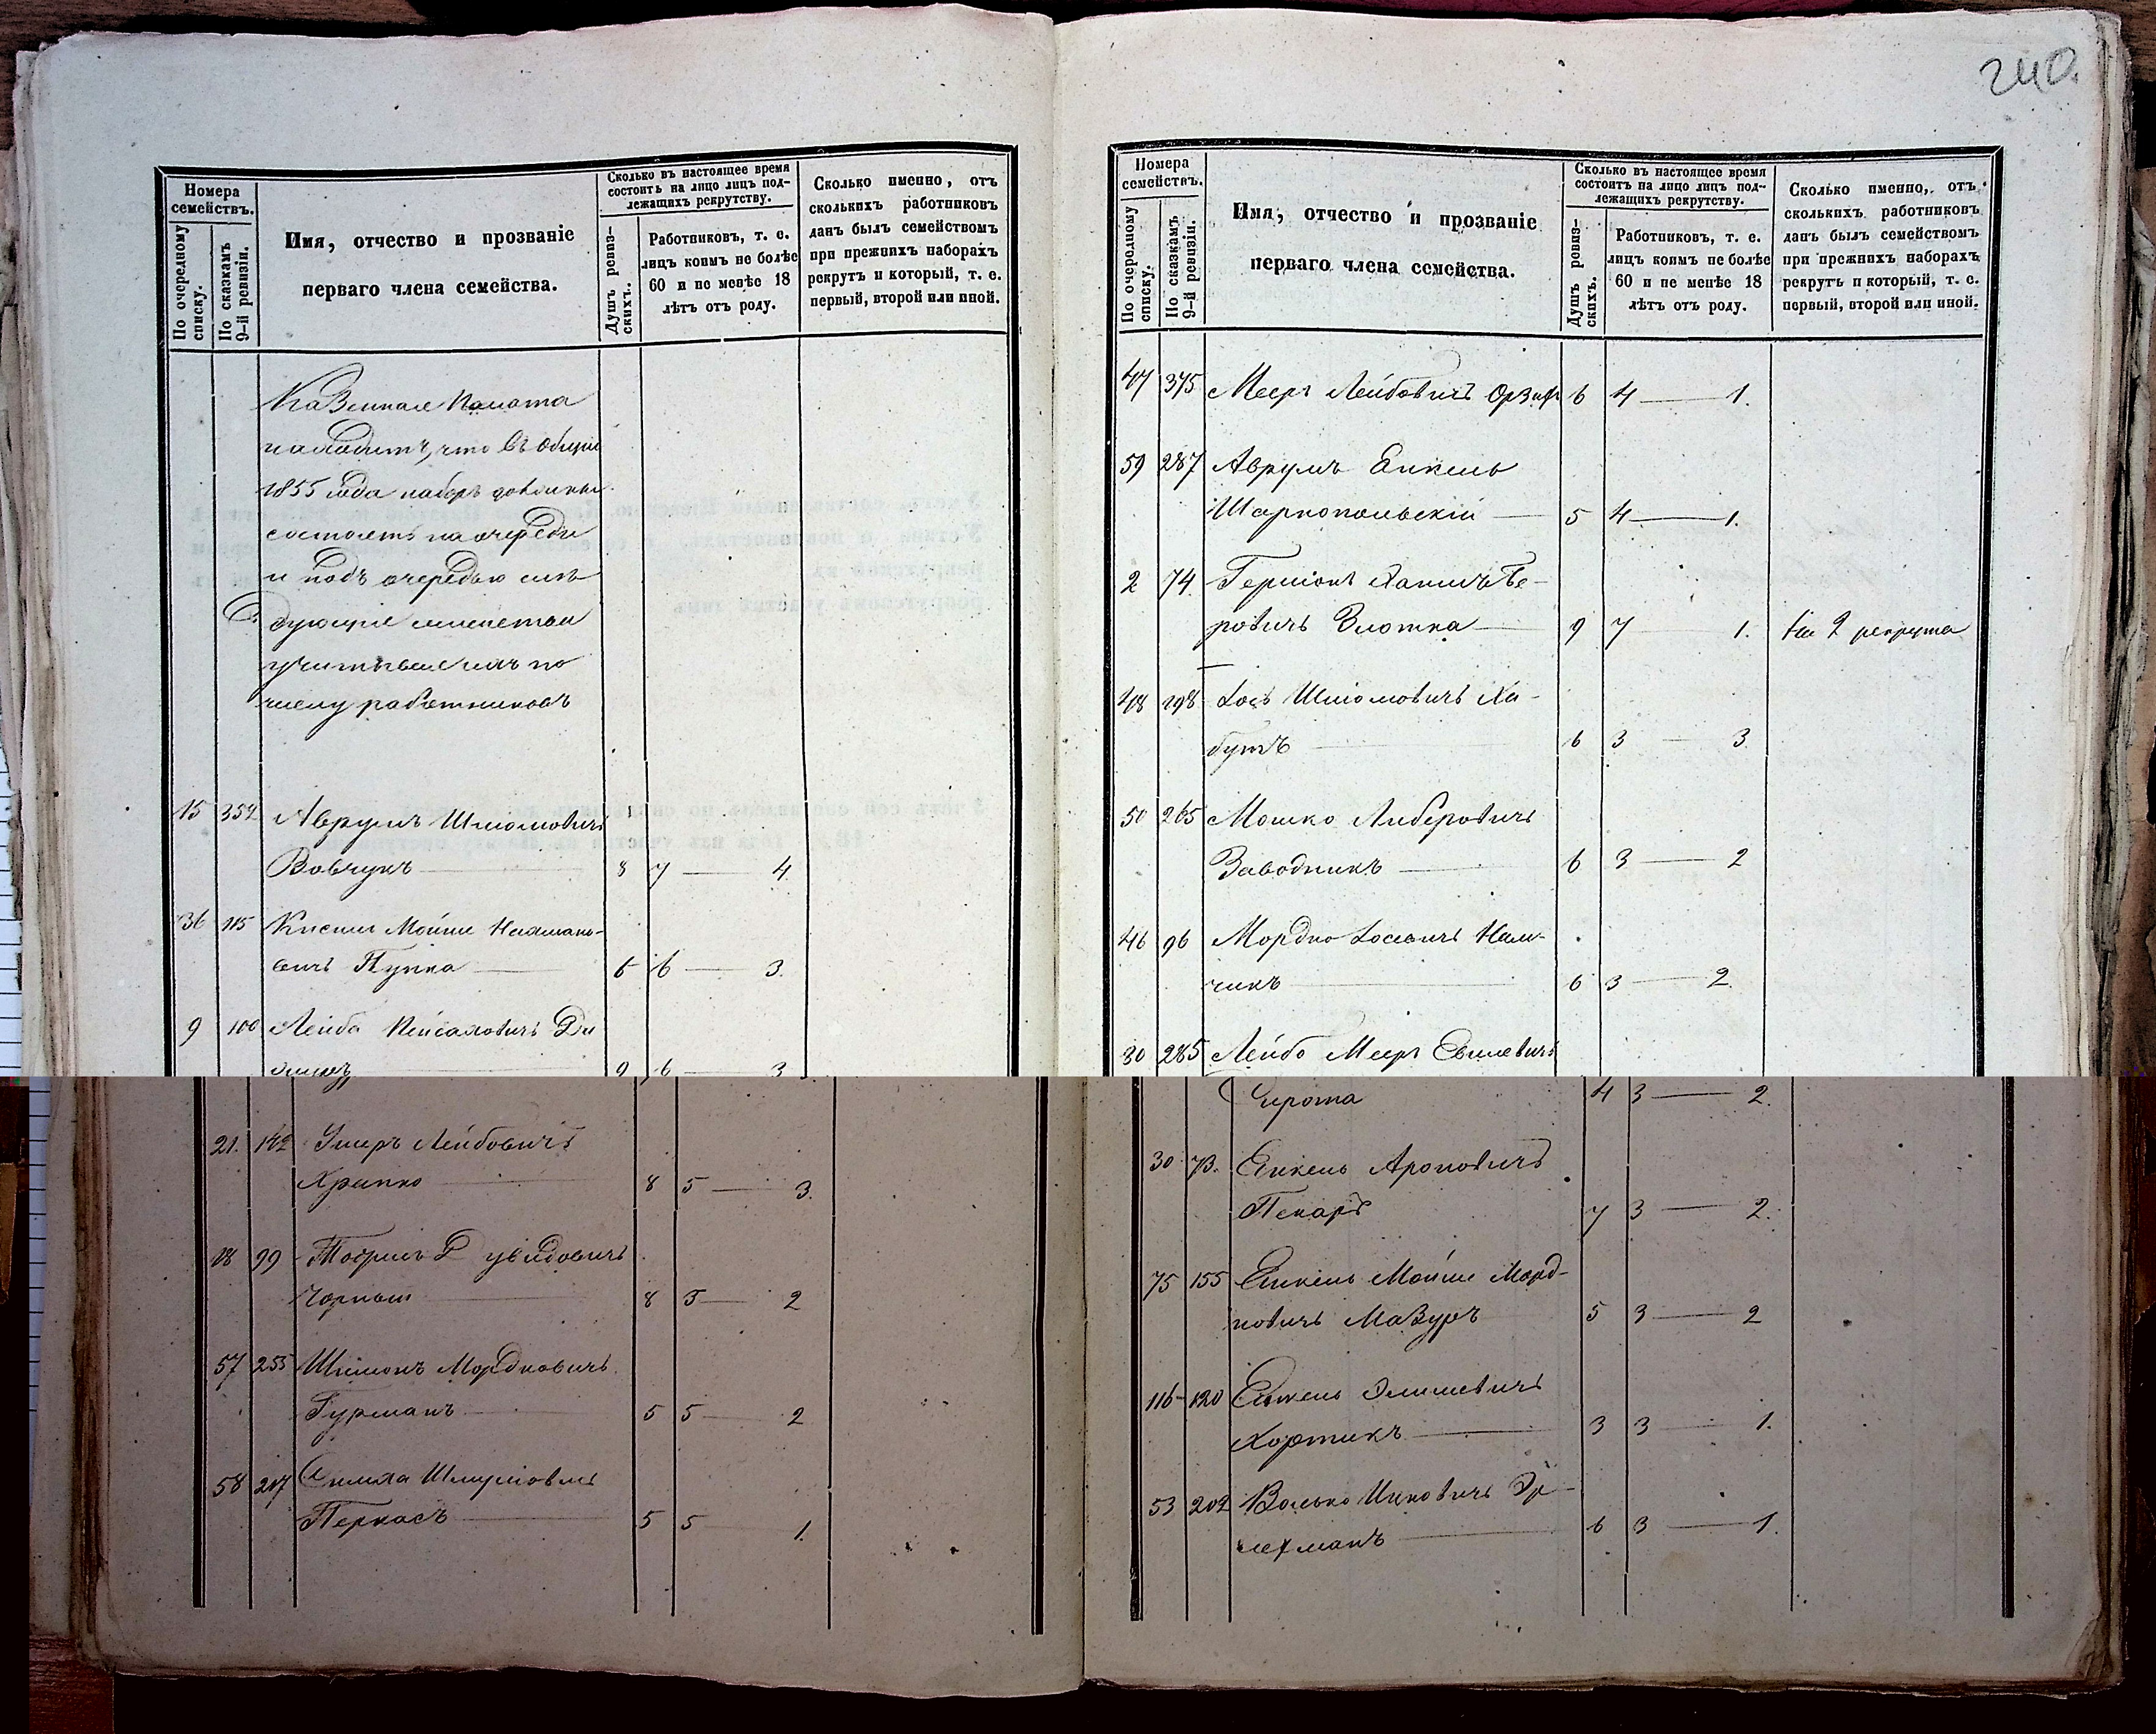 240.
Номера
семействъ.
По очередному
списку.
По сказкамъ
9-й ревизіи.
Имя, отчество и прозваніе
перваго члена семейства.
Сколько въ настоящее время
состоитъ на лицо лицъ под-
лежащихъ рекрутству.
Душъ ревиз-
скихъ.
Работниковъ, т. е.
лицъ коимъ не болѣе
60 и не менѣе 18
лѣтъ отъ роду.
Сколько именно, отъ
сколькихъ работниковъ
данъ былъ семействомъ
при прежнихъ наборахъ
рекрутъ и который, т. е.
первый, второй или иной.
Казенная Палата
находитъ, что въ общій
1855 года наборъ должны
состоять на очереди
и подъ очередью слѣ
дующіе
по
числу работниковъ
15 352 Аврумъ Шліомовичъ
Вовчукъ 8 7 — 4.
36 115 Кисиль Мойше Нахмано-
вичъ Пупка 6 6 — 3.
9 100 Лейба Пейсаховичъ
9 6 — 3
21. 142 Ушеръ Лейбовичъ
Храпко 8 5 — 3.
18 99 Дувидовичъ
Чорныш 8 5 — 2
57 255 Шліомъ Мордковичъ
Гурманъ 5 5 — 2
58 217 Симха Шмуліовичъ
Перкасъ 5 5 — 1.
Номера
семействъ.
По очередному
списку.
По сказкамъ
9-й ревизіи.
Имя, отчество и прозваніе
перваго члена семейства.
Сколько въ настоящее время
состоитъ на лицо лицъ под-
лежащихъ рекрутству.
Душъ ревиз-
скихъ.
Работниковъ, т. е.
лицъ коимъ не болѣе
60 и не менѣе 18
лѣтъ отъ роду.
Сколько именно, отъ
сколькихъ работниковъ
данъ былъ семействомъ
при прежнихъ наборахъ
рекрутъ и который, т. е.
первый, второй или иной.
47 375 Мееръ Лейбовичъ 6 4 — 1.
59 287 Аврумъ Енкель
Шарнопольскій — 5 4 — 1.
2 74. Гершонъ Хаимъ Бе-
ровичъ Злотка — 9 7 — 1. на 2 рекрута
48 198 Іось Шліомовичъ Ха-
бутъ 6 3 — 3
50 265 Мошко Либеровичъ
Заводникъ — 6 3 — 2
46 96 Мордко Іосевичъ Нем-
чикъ 6 3 — 2.
30 285 Лейбо Мееръ
Сирота 4 3 — 2.
30 73. Енкель Ароновичъ
Пекарь 7 3 — 2.
75 155 Енкель Мойше Морд-
ковичъ Мазуръ 5 3 — 2
116 120 Енкель
Хортикъ — 3 3 — 1.
53 202 Волько Ицковичъ
6 3 — 1.